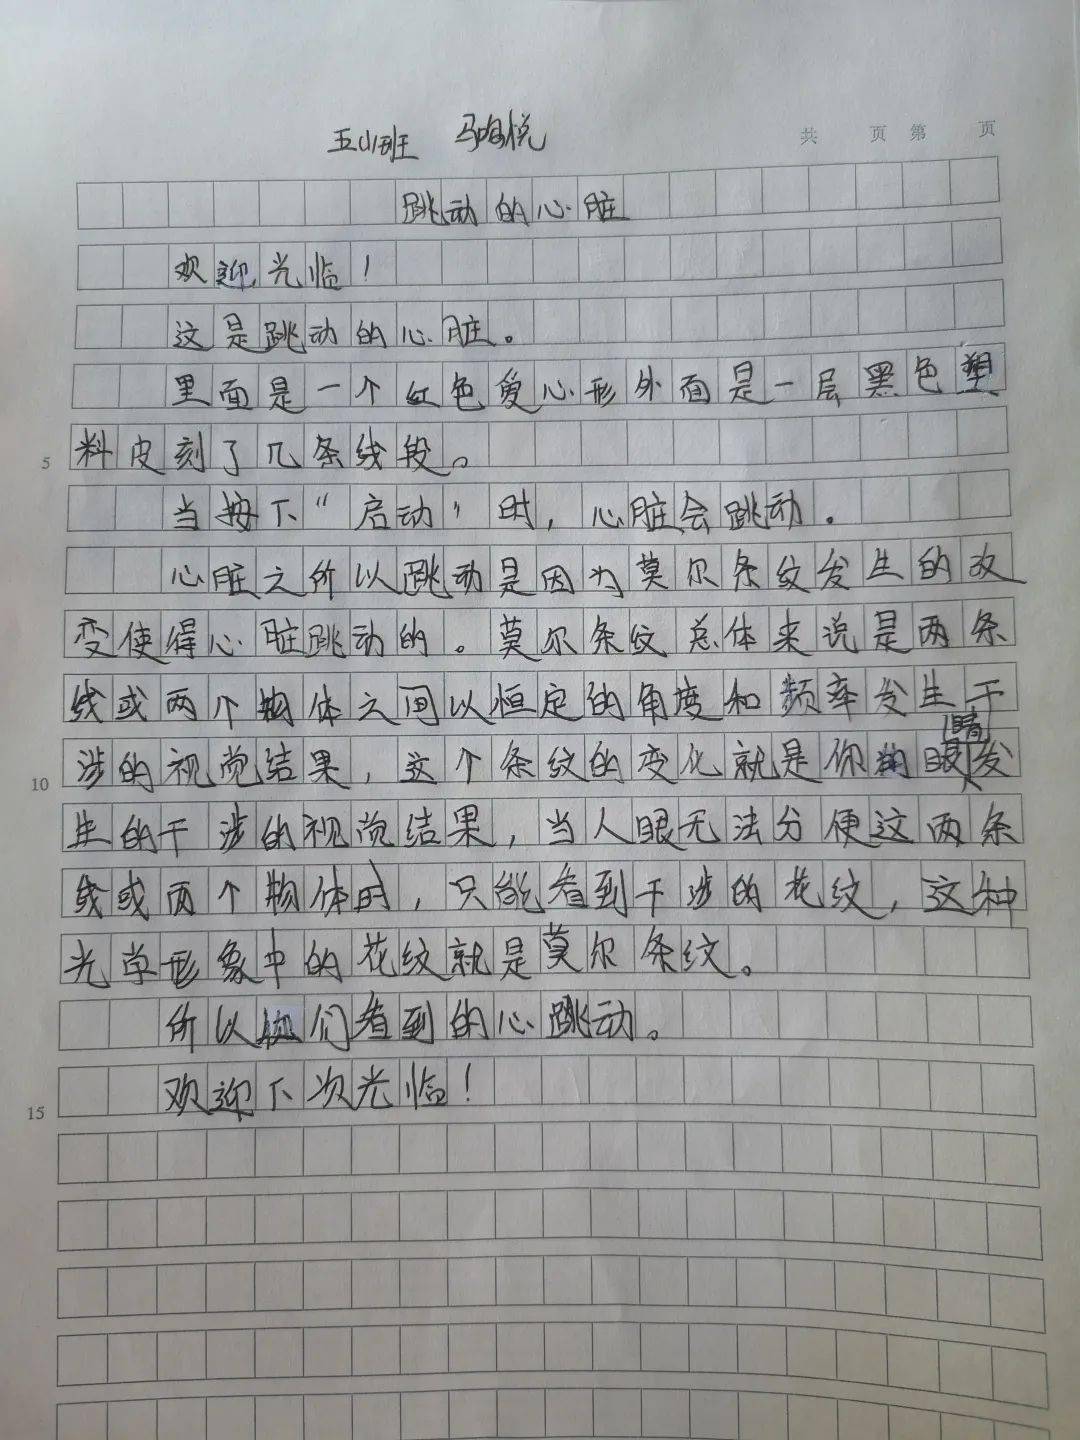 五(4)班 马晗悦
共 页 第 页
跳动的心脏
欢迎光临！
这是跳动的心脏。
里面是一个红色爱心形外面是一层黑色塑
5 料皮刻了几条线段。
当按下“启动”时，心脏会跳动。
心脏之所以跳动是因为莫尔条纹发生的改
变使得心脏跳动的。莫尔条纹总体来说是两条
线或两个物体之间以恒定的角度和频率发生干
10 涉的视觉结果，这个条纹的变化就是你的眼睛发
生的干涉的视觉结果，当人眼无法分便这两条
线或两个物体时，只能看到干涉的花纹，这种
光学形象中的花纹就是莫尔条纹。
所以你们看到的心跳动。
15 欢迎下次光临！